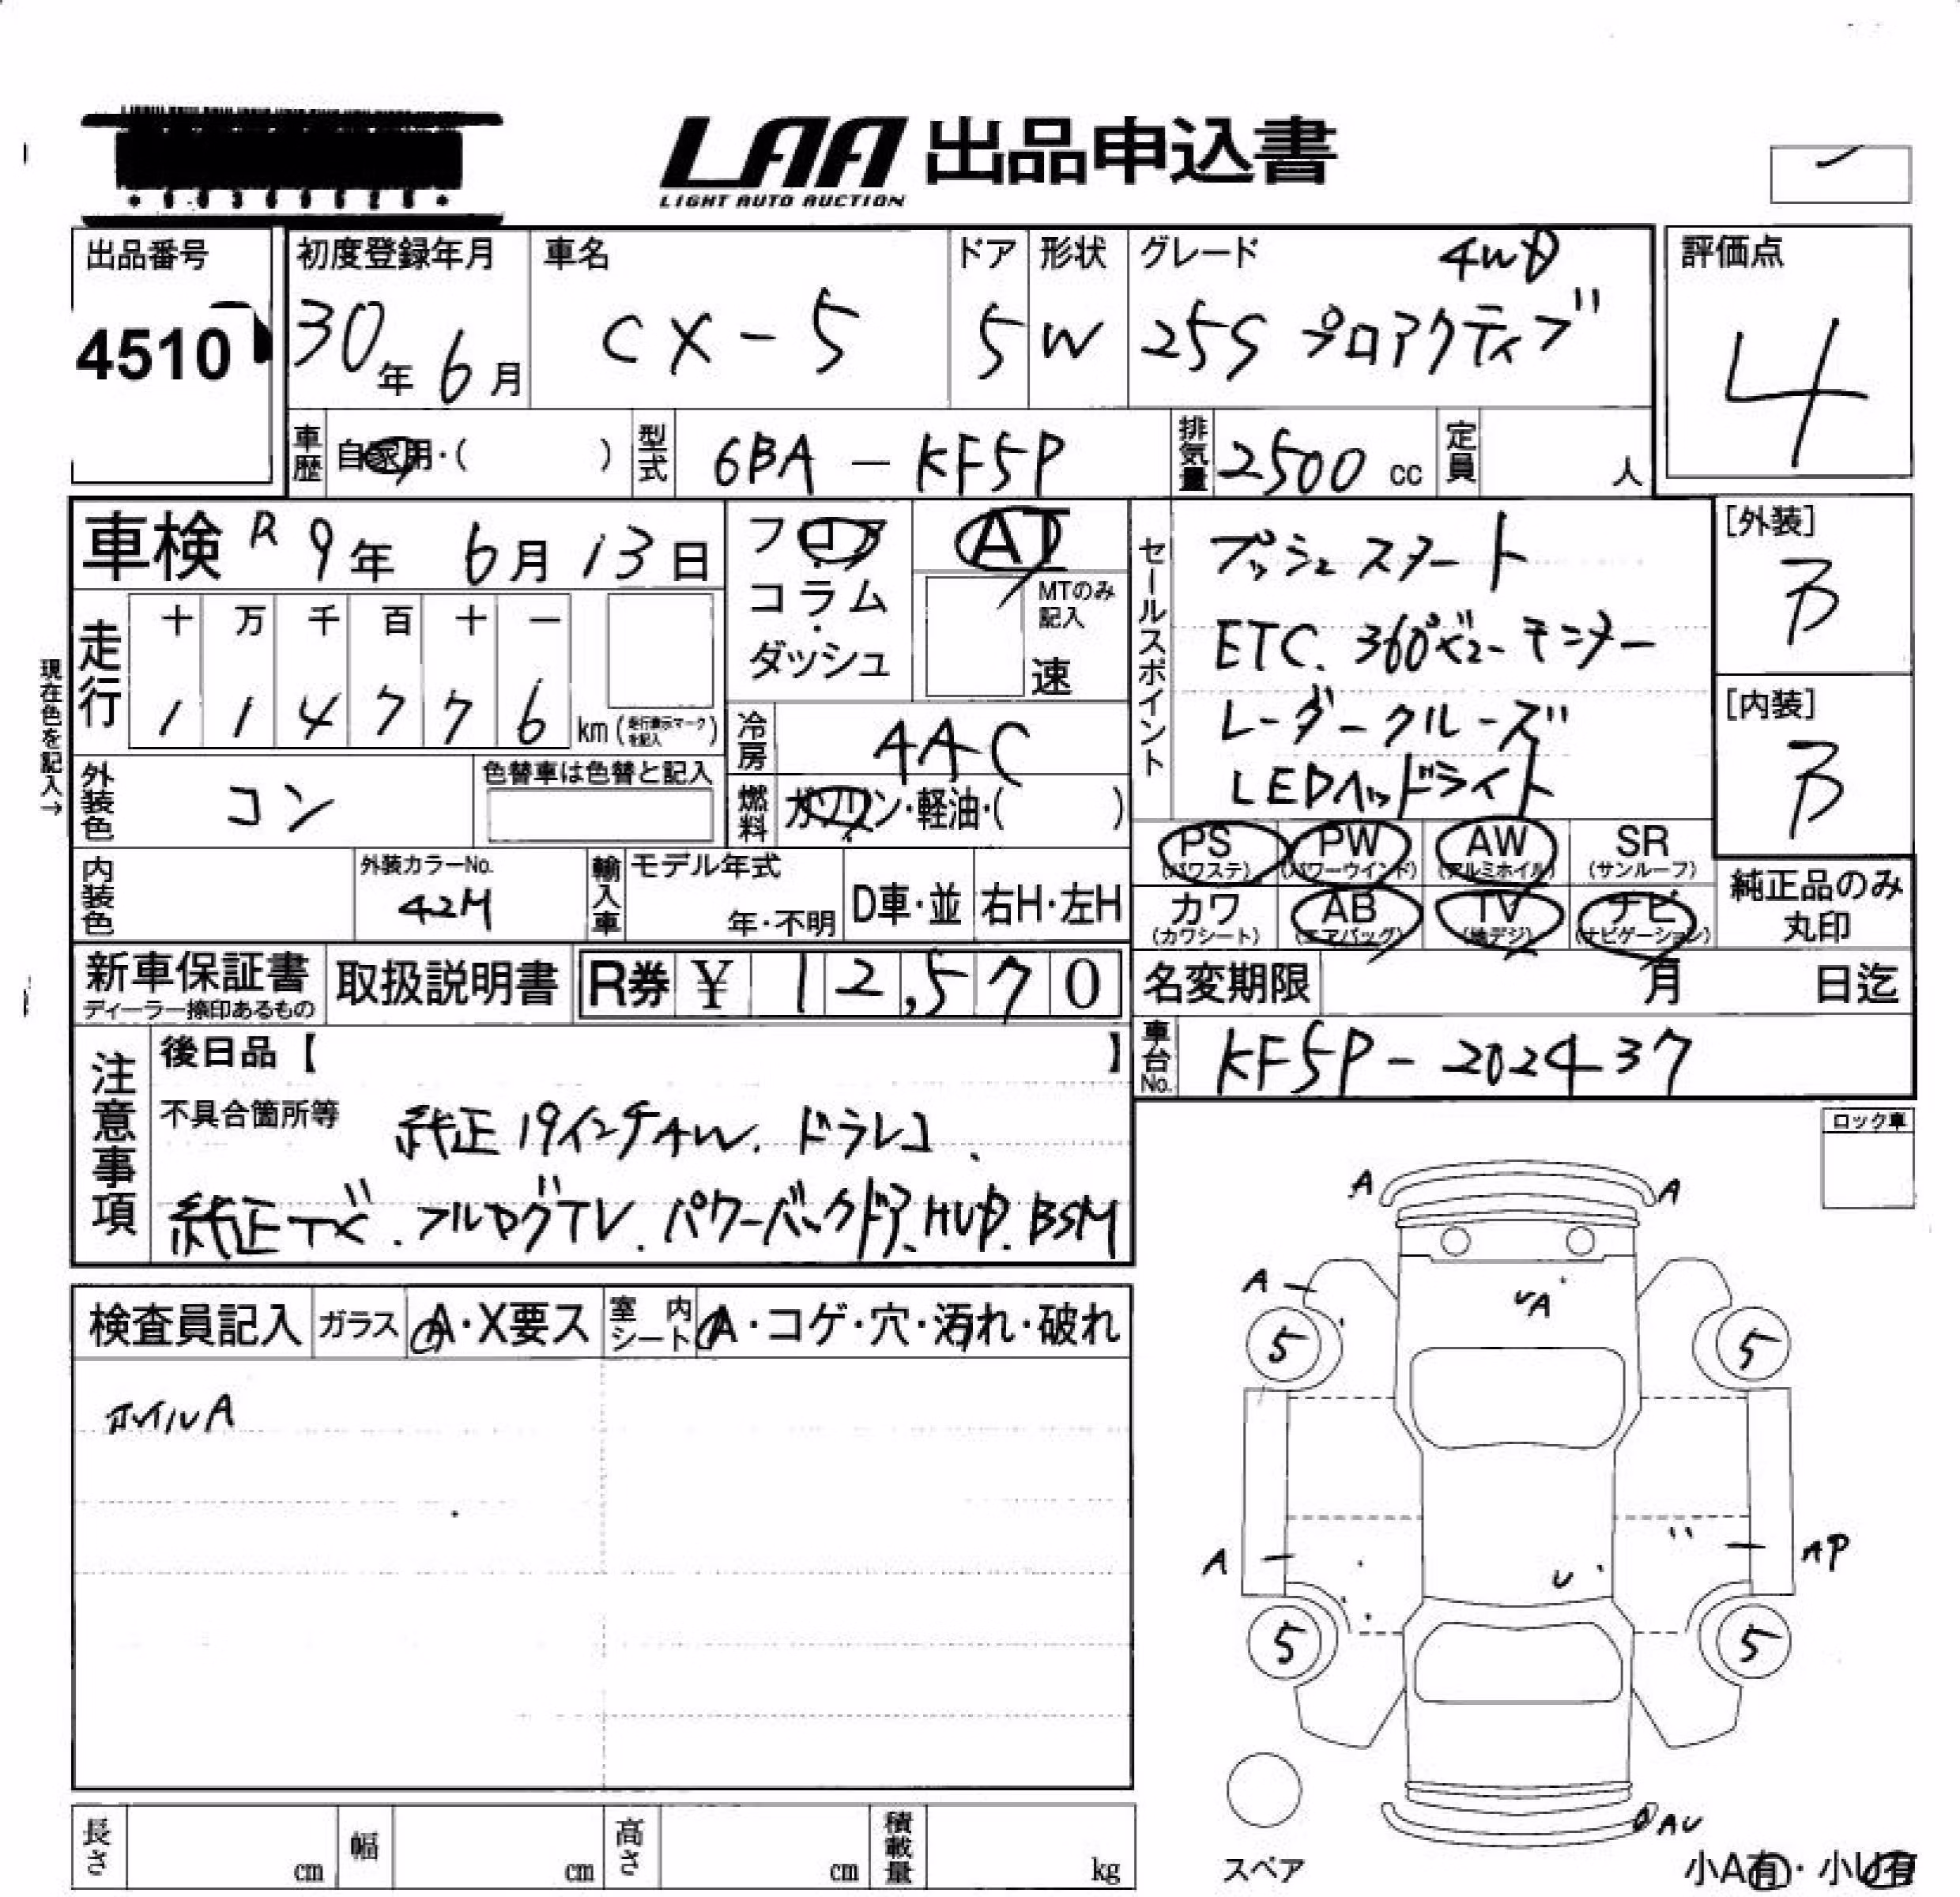 LAA 出品申込書
LIGHT AUTO AUCTION
出品番号
4510
初度登録年月
30年 6月
車名
CX-5
ドア
5
形状
W
グレード 4WD
25S プロアクティブ
評価点
4
車歴 自家用・( )
型式 6BA-KF5P
排気量 2500 cc
定員 人
車検 R 9年 6月 13日
フロア
コラム・
ダッシュ
AT
MTのみ記入
速
走行
十 万 千 百 十 一
1 1 4 7 7 6 km (走行表示マークを記入)
現在色を記入→
冷房 AAC
外装色 コン
色替車は色替と記入
燃料 ガソリン・軽油・( )
内装色
外装カラーNo.
42M
輸入車 モデル年式
年・不明
D車・並 右H・左H
セールスポイント
プッシュスタート
ETC. 360°ビューモニター
レーダークルーズ
LEDヘッドライト
[外装]
B
[内装]
B
PS (パワステ) PW (パワーウインド) AW (アルミホイル) SR (サンルーフ)
カワ (カワシート) AB (エアバッグ) TV (地デジ) ナビ (ナビゲーション)
純正品のみ丸印
新車保証書
ディーラー捺印あるもの
取扱説明書
R券 ¥ 12,570
名変期限 月 日迄
車台No. KF5P-202437
注意事項
後日品【 】
不具合箇所等 純正19インチAW. ドラレコ.
純正ナビ.フルセグTV.パワーバックドア.HUD.BSM
ロック車
検査員記入 ガラス A・X要ス 室内シート A・コゲ・穴・汚れ・破れ
ホイルA
A A
A
UA
5 5
A
U
AP
5 5
AU
スペア
小A有・小U有
長さ cm 幅 cm 高さ cm 積載量 kg